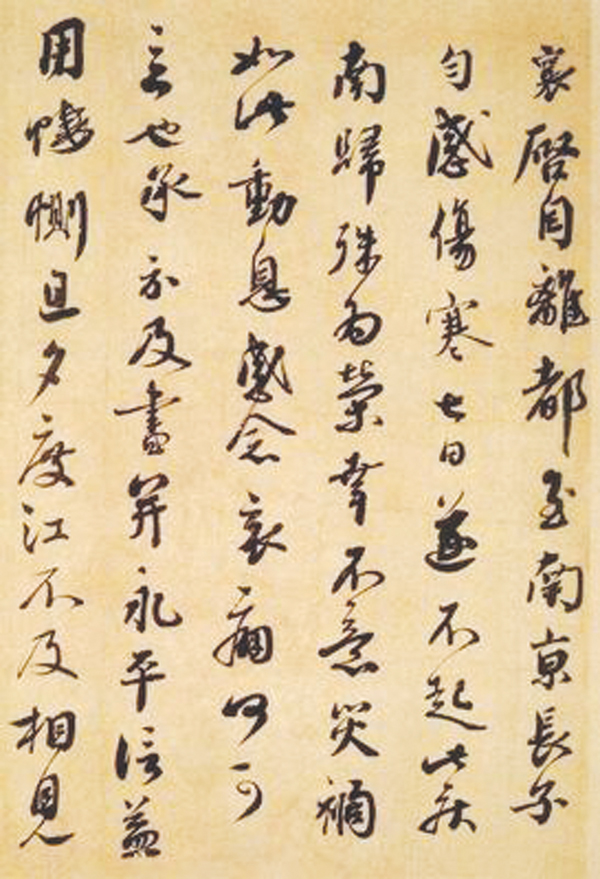 襄啓自離都至南京長子
勻感傷寒七日遂不起此疾
南歸殊爲榮幸不意災禍
如此動息感念哀痛何可
言也承示及書并永平信益
用悽惻旦夕度江不及相見